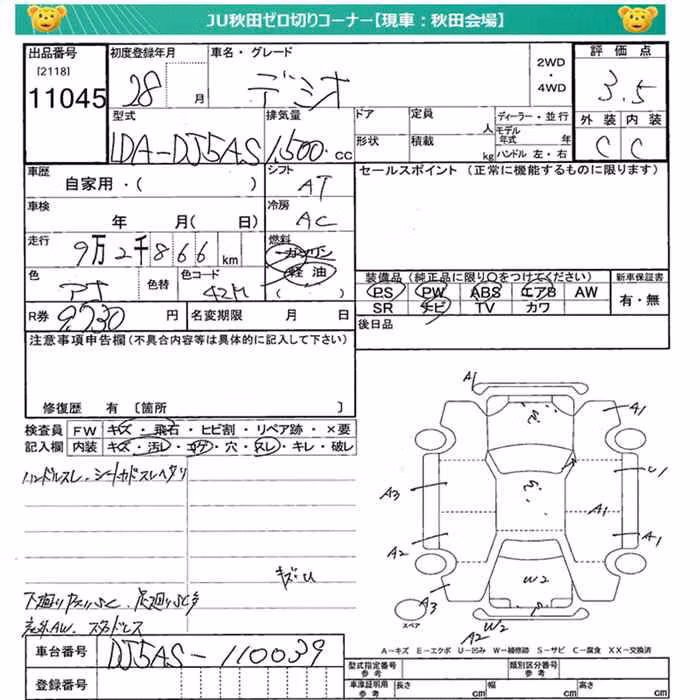 JU秋田ゼロ切りコーナー【現車：秋田会場】
出品番号 初度登録年月 車名・グレード 評価点
[2118] 28 月 デミオ 2WD・4WD 3.5
11045
型式 排気量 ドア 定員 人 ディーラー・並行 外装 内装
LDA-DJ5AS 1,500 cc 形状 積載 kg モデル年式 年 ハンドル 左・右 C C
車歴 シフト セールスポイント（正常に機能するものに限ります）
自家用・( ) AT
車検 冷房
年 月( 日) AC
走行 燃料
9万2千866 km ガソリン
軽油
( )
色 色替 色コード 42M
装備品（純正品に限り○をつけてください） 新車保証書
PS PW ABS エアB AW 有・無
SR ナビ TV カワ
R券 9,730 円 名変期限 月 日 後日品
注意事項申告欄（不具合内容等は具体的に記入して下さい）
修復歴 有 〔箇所 〕
検査員 FW キズ・飛石・ヒビ割・リペア跡・×要
記入欄 内装 キズ・汚レ・コゲ・穴・スレ・キレ・破レ
ハンドルスレ、シートカドスレヘタリ
キズU
A1
A1
A3 U1
A1
A2 A1
W2
A3
W2
A2
スペア
A－キズ E－エクボ U－凹み W－補修跡 S－サビ C－腐食 XX－交換済
車台番号 DJ5AS-110039
型式指定番号 参考 類別区分番号 参考
登録番号 車庫証明用 参考 長さ cm 幅 cm 高さ cm